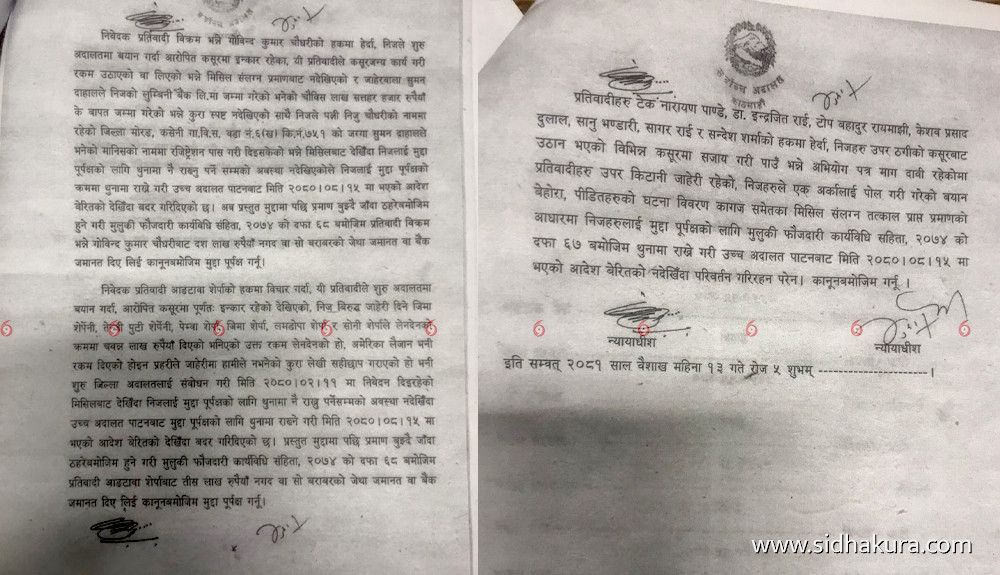 निवेदक प्रतिवादी विक्रम भन्ने गोविन्द कुमार चौधरीको हकमा हेर्दा, निजले शुरु
अदालतमा बयान गर्दा आरोपित कसूरमा इन्कार रहेका, यी प्रतिवादीले कसूरजन्य कार्य गरी
रकम उठाएको वा लिएको भन्ने मिसिल संलग्न प्रमाणबाट नदेखिएको र जाहेरवाला सुमन
दाहालले निजको लुम्बिनी बैंक लि.मा जम्मा गरेको भनेको चौबिस लाख सत्तहर हजार रुपैयाँ
के बापत जम्मा गरेको भन्ने कुरा स्पष्ट नदेखिएको साथै निजले पत्नी निजु चौधरीको नाममा
रहेको जिल्ला मोरङ, कसेनी गा.वि.स. वडा नं.६(ख) कि.नं.७५१ को जग्गा सुमन दाहालले
भनेको मानिसको नाममा रजिष्ट्रेशन पास गरी दिइसकेको भन्ने मिसिलबाट देखिँदा निजलाई मुद्दा
पूर्पक्षको लागि थुनामा नै राख्नु पर्ने सम्मको अवस्था नदेखिएकोले निजलाई मुद्दा पूर्पक्षको
क्रममा थुनामा राख्ने गरी उच्च अदालत पाटनबाट मिति २०८०।०८।१५ मा भएको आदेश
बेरितको देखिँदा बदर गरिदिएको छ। अब प्रस्तुत मुद्दामा पछि प्रमाण बुझ्दै जाँदा ठहरेबमोजिम
हुने गरी मुलुकी फौजदारी कार्यविधि संहिता, २०७४ को दफा ६८ बमोजिम प्रतिवादी विक्रम
भन्ने गोविन्द कुमार चौधरीबाट दश लाख रुपैयाँ नगद वा सो बराबरको जेथा जमानत वा बैंक
जमानत दिए लिई कानूनबमोजिम मुद्दा पूर्पक्ष गर्नू।
निवेदक प्रतिवादी आङटावा शेर्पाको हकमा विचार गर्दा, यी प्रतिवादीले शुरु अदालतमा
बयान गर्दा, आरोपित कसूरमा पूर्णतः इन्कार रहेको देखिएको, निज विरुद्ध जाहेरी दिने जिमा
शेर्पेनी, पुटी शेर्पेनी, पेम्बा शेर्पा, जिमा शेर्पा, लमढोपा शेर्पा र सोनी शेर्पाले लेनदेनको
क्रममा चवन्न लाख रुपैयाँ दिएको भनिएको उक्त रकम लेनदेनको हो, अमेरिका लैजान भनी
रकम दिएको होइन प्रहरीले जाहेरीमा हामीले नभनेको कुरा लेखी सहीछाप गराएको हो भनी
शुरु जिल्ला अदालतलाई संबोधन गरी मिति २०८०।०२।११ मा निवेदन दिइरहेको
मिसिलबाट देखिँदा निजलाई मुद्दा पूर्पक्षको लागि थुनामा नै राख्नु पर्नेसम्मको अवस्था नदेखिँदा
उच्च अदालत पाटनबाट मुद्दा पूर्पक्षको लागि थुनामा राख्ने गरी मिति २०८०।०८।१५ मा
भएको आदेश बेरितको देखिँदा बदर गरिदिएको छ। प्रस्तुत मुद्दामा पछि प्रमाण बुझ्दै जाँदा
ठहरेबमोजिम हुने गरी मुलुकी फौजदारी कार्यविधि संहिता, २०७४ को दफा ६८ बमोजिम
प्रतिवादी आङटावा शेर्पाबाट तीस लाख रुपैयाँ नगद वा सो बराबरको जेथा जमानत वा बैंक
जमानत दिए लिई कानूनबमोजिम मुद्दा पूर्पक्ष गर्नू।
सर्वोच्च अदालत
काठमाडौं
प्रतिवादीहरु टेक नारायण पाण्डे, डा. इन्द्रजित राई, टोप बहादुर रायमाझी, केशव प्रसाद
दुलाल, सानु भण्डारी, सागर राई र सन्देश शर्माको हकमा हेर्दा, निजहरु उपर ठगीको कसूरबाट
उठान भएको विभिन्न कसूरमा सजाय गरी पाउँ भन्ने अभियोग पत्र माग दावी रहेकोमा
प्रतिवादीहरु उपर किटानी जाहेरी रहेको, निजहरुले एक अर्कालाई पोल गरी गरेको बयान
बेहोरा, पीडितहरुको घटना विवरण कागज समेतका मिसिल संलग्न तत्काल प्राप्त प्रमाणको
आधारमा निजहरुलाई मुद्दा पूर्पक्षको लागि मुलुकी फौजदारी कार्यविधि संहिता, २०७४ को
दफा ६७ बमोजिम थुनामा राख्ने गरी उच्च अदालत पाटनबाट मिति २०८०।०८।१५ मा
भएको आदेश बेरितको नदेखिँदा परिवर्तन गरिरहन परेन। कानूनबमोजिम गर्नू ।
न्यायाधीश
न्यायाधीश
इति सम्वत् २०८१ साल बैशाख महिना १३ गते रोज ५ शुभम् -----------------------।
www.sidhakura.com